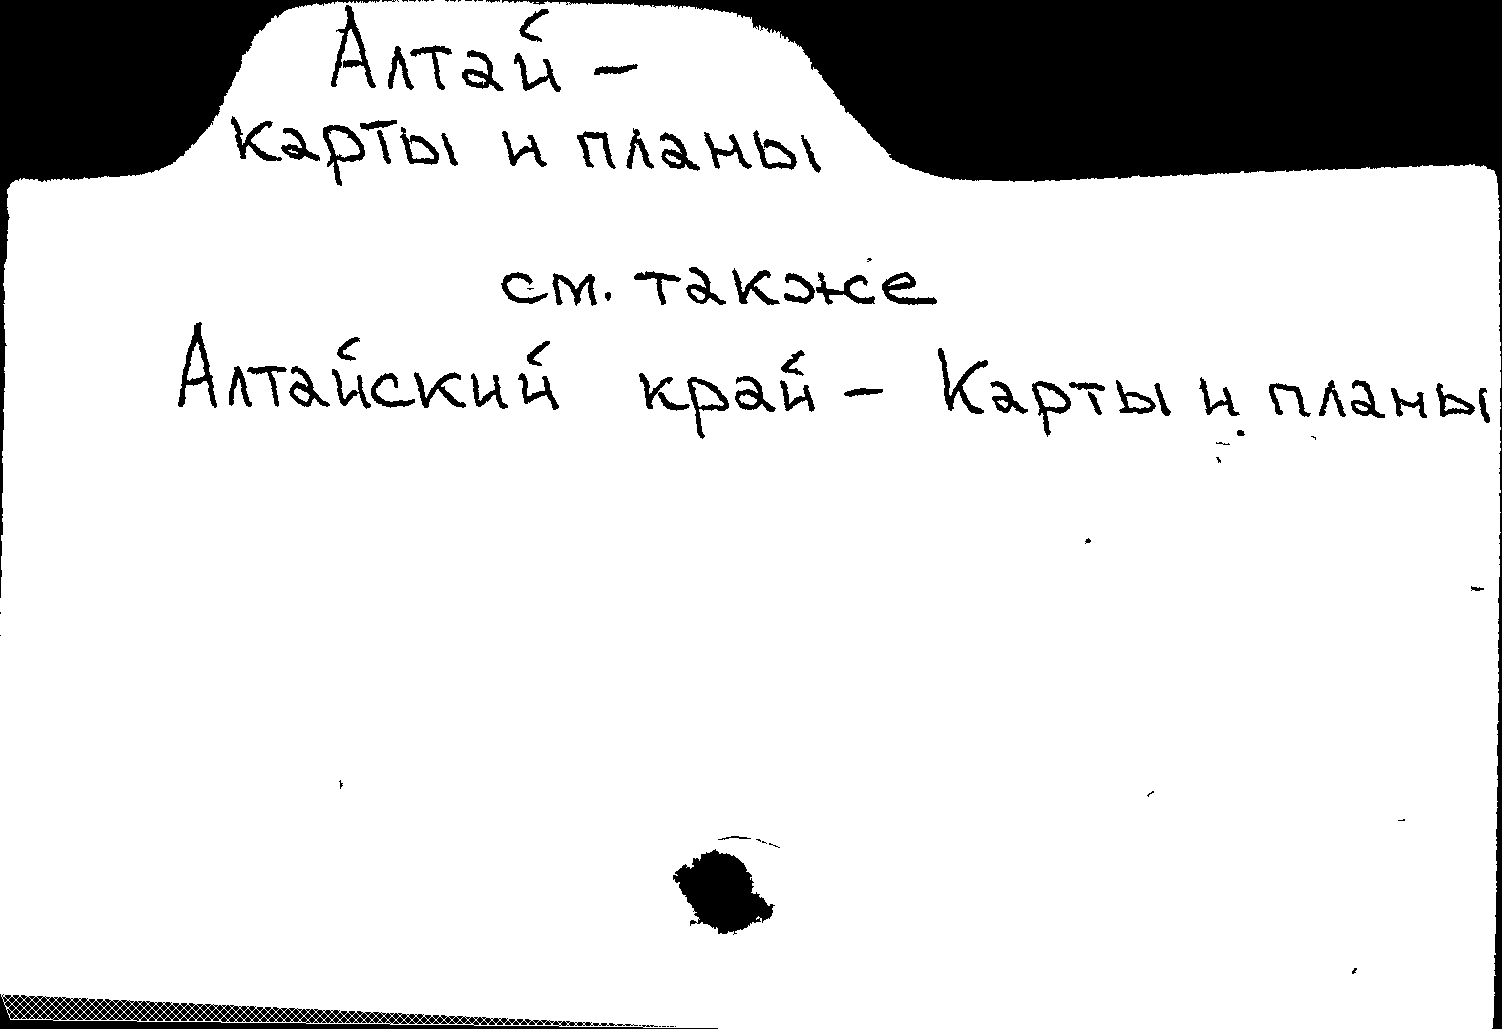 Алтай –
карты и планы
см. также
Алтайский край – Карты и планы